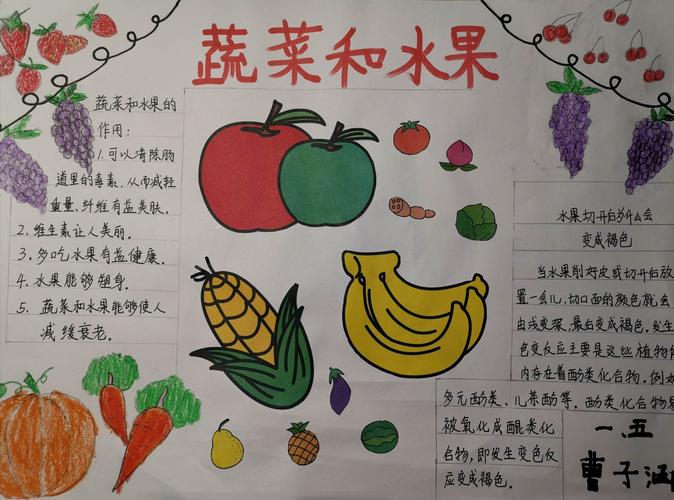 蔬菜和水果
蔬菜和水果的
作用:
1.可以清除肠
道里的毒素,从而减轻
重量、纤维有益美肤。
2、维生素让人美丽。
3.多吃水果有益健康。
4.水果能够塑身。
5.蔬菜和水果能够使人
减缓衰老。
水果切开后为什么会
变成褐色
当水果削好皮或切开后放
置一会儿,切口面的颜色就会
由浅变深,最后变成褐色。发生
色变反应主要是这些植物
内存在着酚类化合物。例如
多元酚类、儿茶酚等。酚类化合物易
被氧化成醌类化
合物,即发生变色反
应变成褐色。
一、五
曹子涵